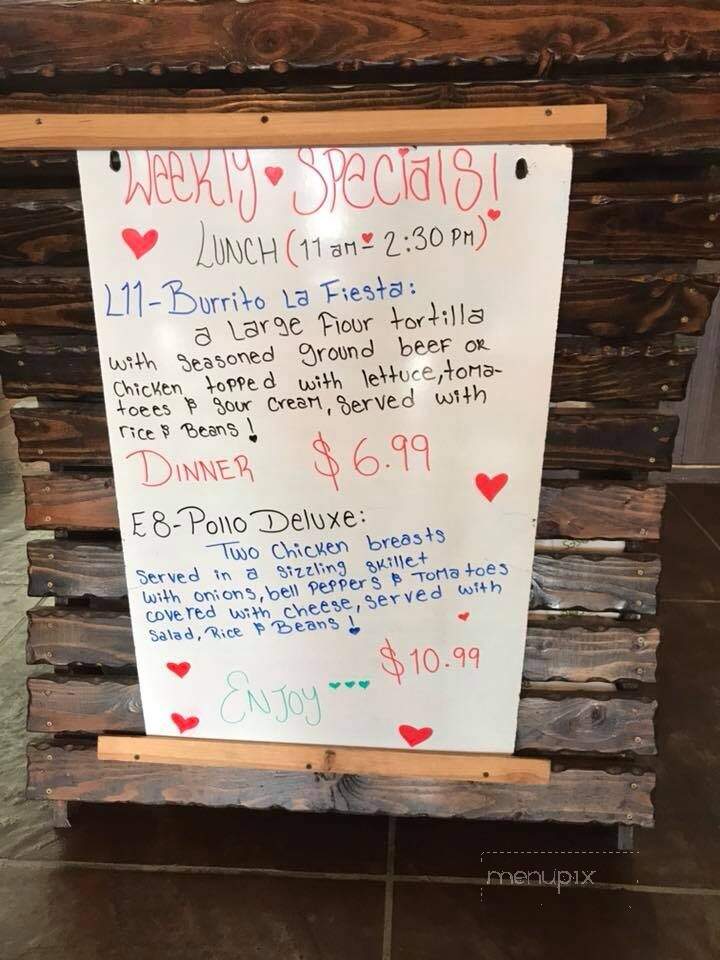 Weekly Specials!
Lunch (11 am - 2:30 PM)
L11-Burrito La Fiesta:
a Large Flour tortilla
with seasoned ground beef or
Chicken topped with lettuce, toma-
toees & sour cream, served with
rice & Beans!
Dinner $6.99
E8-Pollo Deluxe:
Two chicken breasts
served in a sizzling skillet
with onions, bell peppers & Tomatoes
covered with cheese, served with
salad, Rice & Beans!
$10.99
Enjoy
menupix